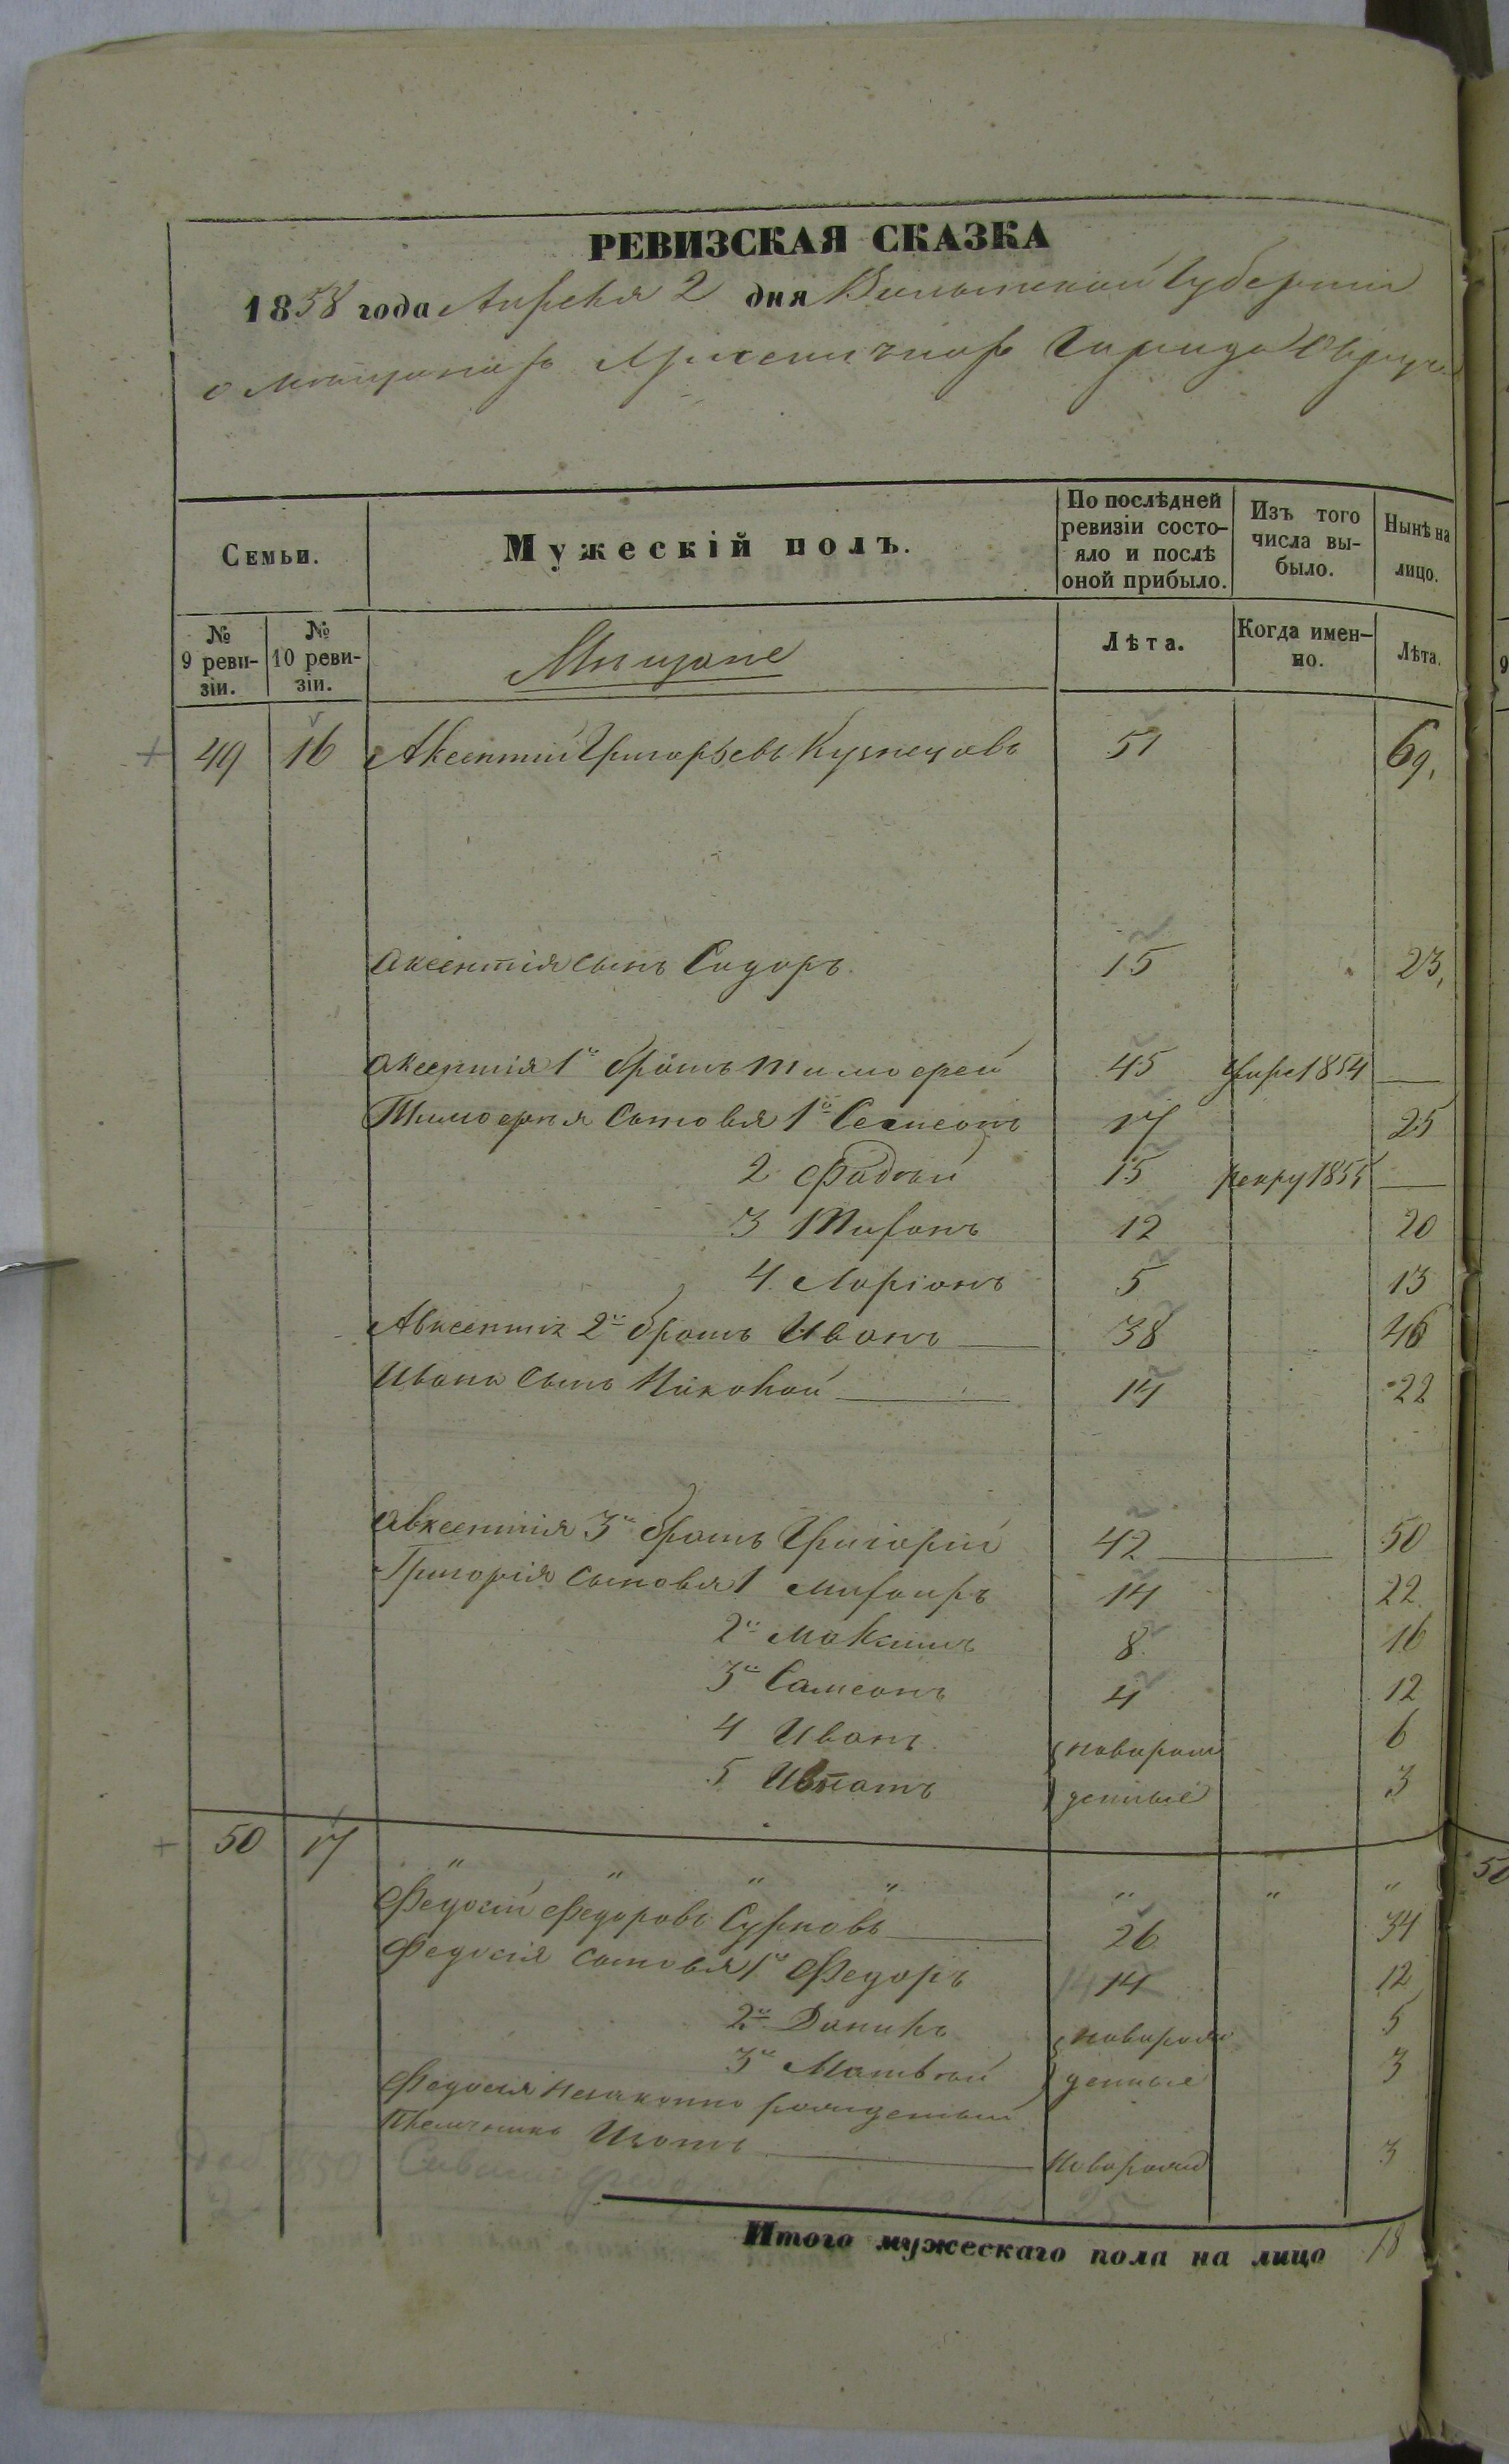 РЕВИЗСКАЯ СКАЗКА
1858 года Апреля 2 дня Волынской Губернии
о мещанахъ Христианахъ Города Овруча
Семьи.
Мужескій полъ.
По послѣдней ревизіи состо-
яло и послѣ
оной прибыло.
Изъ того
числа вы-
было.
Нынѣ на
лицо.
№
9 реви-
зіи.
№
10 реви-
зіи.
Мещане
Лѣта.
Когда имен-
но.
Лѣта.
49 16 Аксентий Григорьевъ Кузнецовъ 51 69,
Аксентія сынъ Сидоръ. 15 23,
Аксентія 1й братъ Тимофей 45 умре 1854
Тимофея сыновья 1й Самсонъ 17 25
2 Фадѣй 15 рекру 1855
3 Тифонъ 12 20
4 Ларіонъ 5 13
Авксентія 2й братъ Иванъ 38 46
Ивана сынъ Николай 14 22
Авксентія 3й братъ Григорій 42 50
Григорія сыновья 1 14 22
2й Максимъ 8 16
3й Самсонъ 4 12
4 Иванъ новорож 6
5 Игнатъ денные 3
50 17 " " " " " " "
Федосій Федоровъ Сурновъ 26 34
Федосія сыновья 1й Федоръ 14 12
2й Данилъ новорож 5
3й Матвѣй денные 3
Федосія незаконно рожденный
племянникъ Игнатъ новорожд 3
Итого мужескаго пола на лицо 18